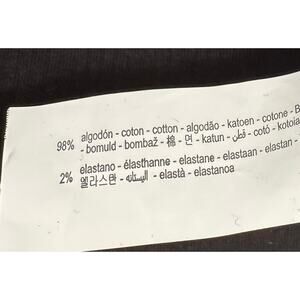 98% algodón - coton - cotton - algodão - katoen - cotone -
- bomuld - bombaž - 棉 - 면 - katun - قطن - cotó - kotoia
2% elastano - élasthanne - elastane - elastaan - elastan -
엘라스탄 - الاستانه - elastà - elastanoa